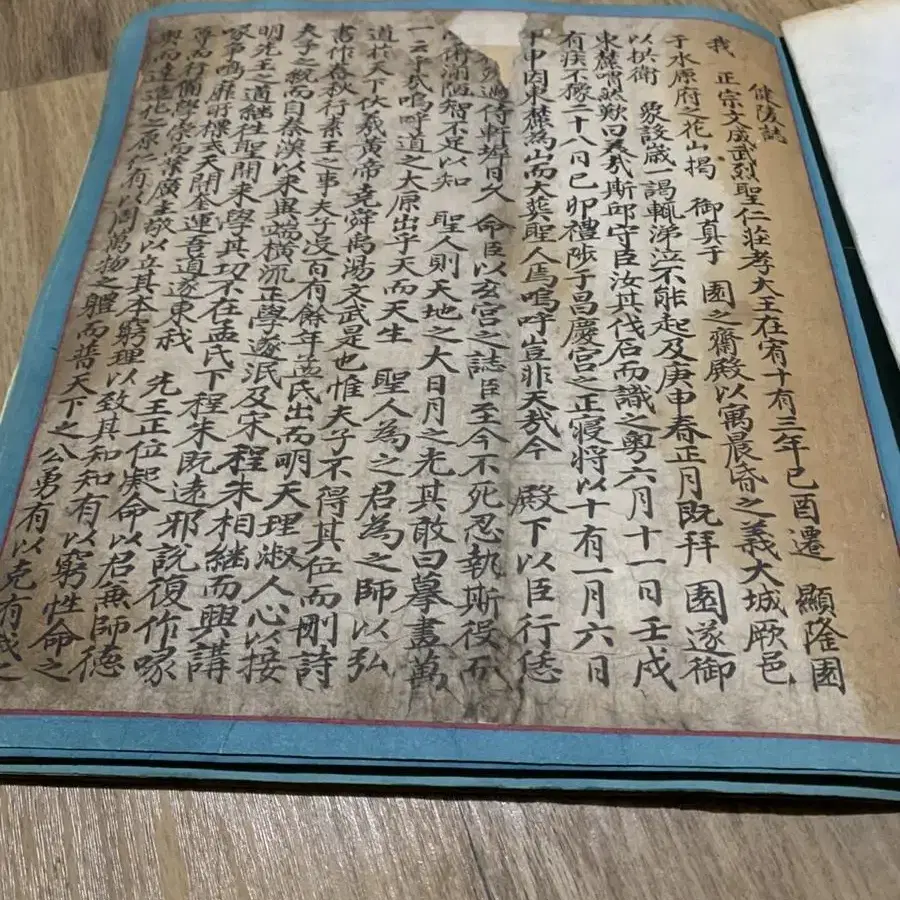 健陵誌
我 正宗文成武烈聖仁莊孝大王在宥十有三年己酉遷 顯隆園
于水原府之花山揭 御真于 園之齋殿以寓晨昏之義大城厥邑
以拱衛 象設歲一謁輒涕泣不能起及庚申春正月既拜 園遂御
東麓喟然歎曰美哉斯邱守臣汝其伐石而識之粤六月十一日壬戌
有疾不豫二十八日己卯禮陟于昌慶宮之正寢將以十有一月六日
甲申因東麓為山而大葬聖人焉嗚呼豈非天哉今 殿下以臣行恁
侍軒墀日久 命臣以玄宮之誌臣至今不死忍執斯役而
陋智不足以知 聖人則天地之大日月之光其敢曰摹畫萬
一云乎哉嗚呼道之大原出乎天而天生 聖人為之君為之師以弘
道於天下伏羲黃帝堯舜禹湯文武是也惟夫子不得其位而刪詩
書作春秋行素王之事夫子沒百有餘年孟氏出而明天理淑人心以接
夫子之統而自秦漢以來異端橫流正學遂泯及宋程朱相繼而興講
明先王之道繼往聖開來學其功不在孟氏下程朱既遠邪說復作家
家爭鳴靡所標弌天開金運吾道遂東我 先王正位凝命以君兼師德
尊而行備學崇而業廣主敬以立其本窮理以致其知知有以窮性命之
奥而達造化之原仁有以周萬物之體而普天下之公勇有以克有我之